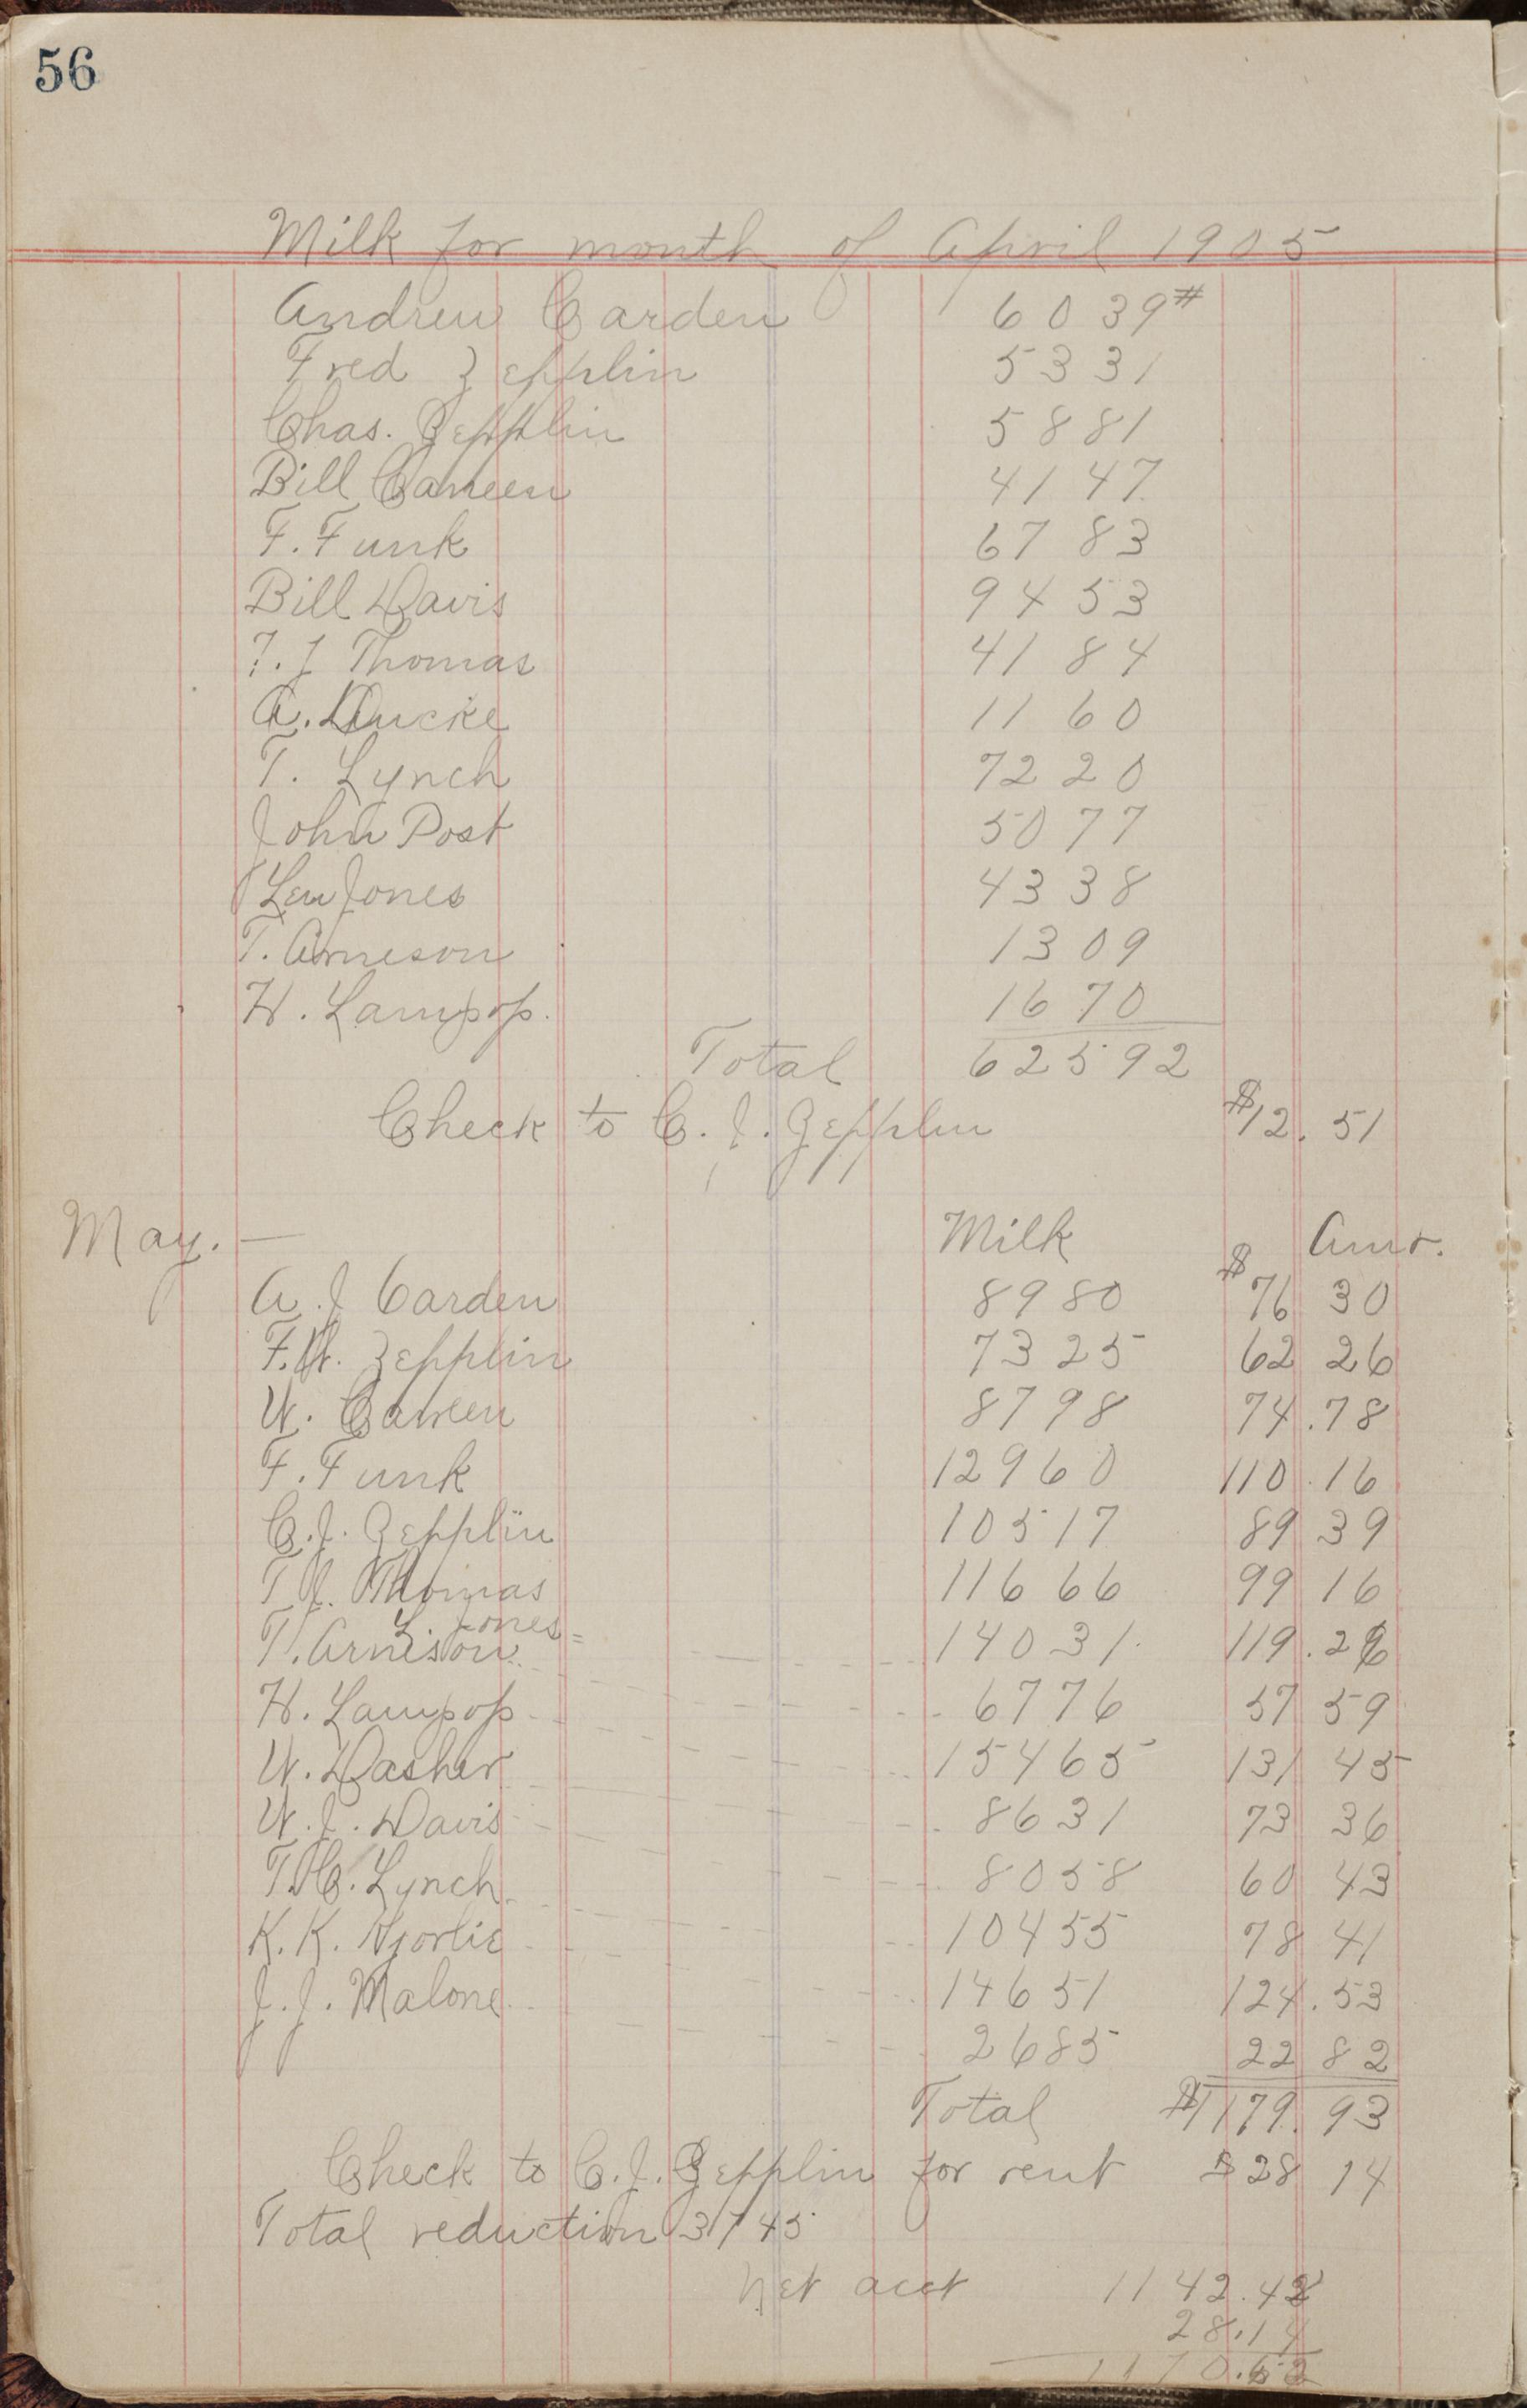 56
Milk for month of April 1905
Andrew Carden 6039#
Fred Zepplin 5331
Chas. Zepplin 5881
Bill Cameen 4147
F. Funk 6783
Bill Davis 9453
T. J Thomas 4184
A. Ducke 1160
T. Lynch 7220
John Post 5077
Lew Jones 4338
T. Arneson 1309
H. Lampop. 1670
Total 62592
Check to C. J. Zepplin $12.51
May. — Milk Amt.
A. J Carden 8980 $76 30
F. W. Zepplin 7325 62 26
W. Cameen 8798 74.78
F. Funk 12960 110.16
C. J. Zepplin 10517 89 39
T. J. Thomas 11666 99 16
L Jones =
T. Arnison 14031 119.26
H. Lampop 6776 57 59
W. Dasher 15465 131 45
W. J. Davis 8631 73 36
T. C. Lynch 8058 60 43
K. K. Njorlie 10455 78 41
J. J. Malone 14651 124.53
2685 22 82
Total $1179.93
Check to C. J. Zepplin for rent $28 14
Total reduction 3745
Net acct 1142.48
28.14
1170.62